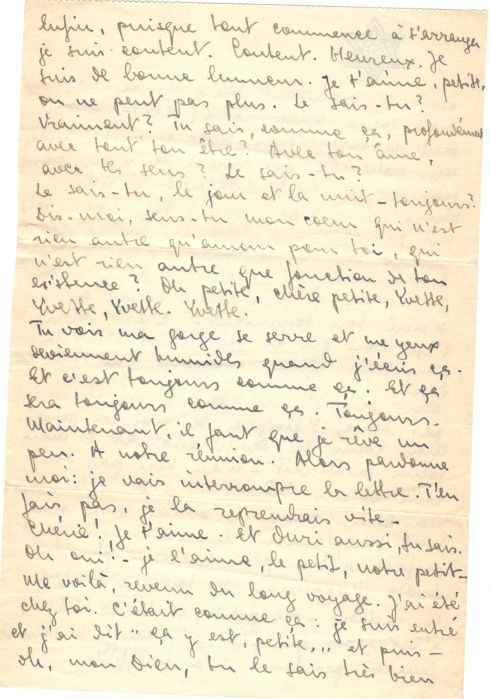 Enfin, puisque tout commence à s'arranger
je suis content. Content. Heureux. Je
suis de bonne humeur. Je t'aime, petite,
on ne peut pas plus. Le sais-tu?
Vraiment? Tu sais, comme ça, profondément
avec tout ton être? Avec ton âme,
avec tes sens? Le sais-tu?
Le sais-tu, le jour et la nuit - toujours?
Dis-moi, sens-tu mon coeur qui n'est
rien autre qu'amour pour toi, qui
n'est rien autre que fonction de ton
existence? Oh petite, chère petite, Yvette,
Yvette, Yvette. Yvette.
Tu vois ma gorge se serre et me yeux
deviennent humides quand j'écris ça.
Et c'est toujours comme ça. Et ça
sera toujours comme ça. Toujours.
Maintenant, il faut que je rêve un
peu. A notre réunion. Alors pardonne
moi: je vais interrompre la lettre. T'en
fais pas, je la reprendrais vite -
Chérie!, Je t'aime. Et Duri aussi, tu sais.
Oh oui! - je l'aime, le petit, notre petit -
Me voilà, revenu du long voyage. J'ai été
chez toi. C'était comme ça: je suis entré
et j'ai dit "ça y est, petite," et puis -
oh, mon Dieu, tu le sais très bien